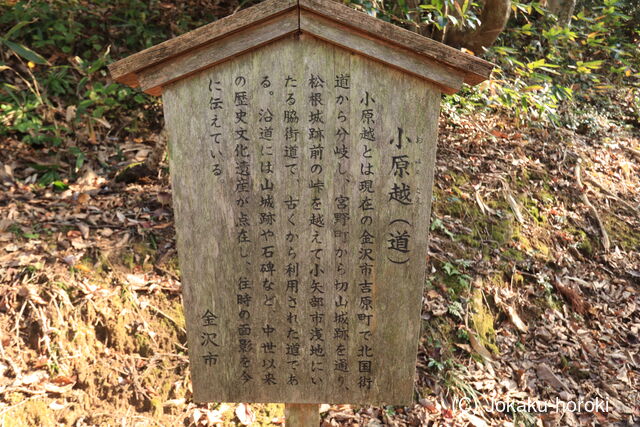 小原越（道）
おばらごえ
小原越とは現在の金沢市吉原町で北国街
道から分岐し、宮野町から切山城跡を通り、
松根城跡前の峠を越えて小矢部市浅地にい
たる脇街道で、古くから利用された道であ
る。沿道には山城跡や石碑など、中世以来
の歴史文化遺産が点在し、往時の面影を今
に伝えている。
金沢市
(C) Jokaku-horoki